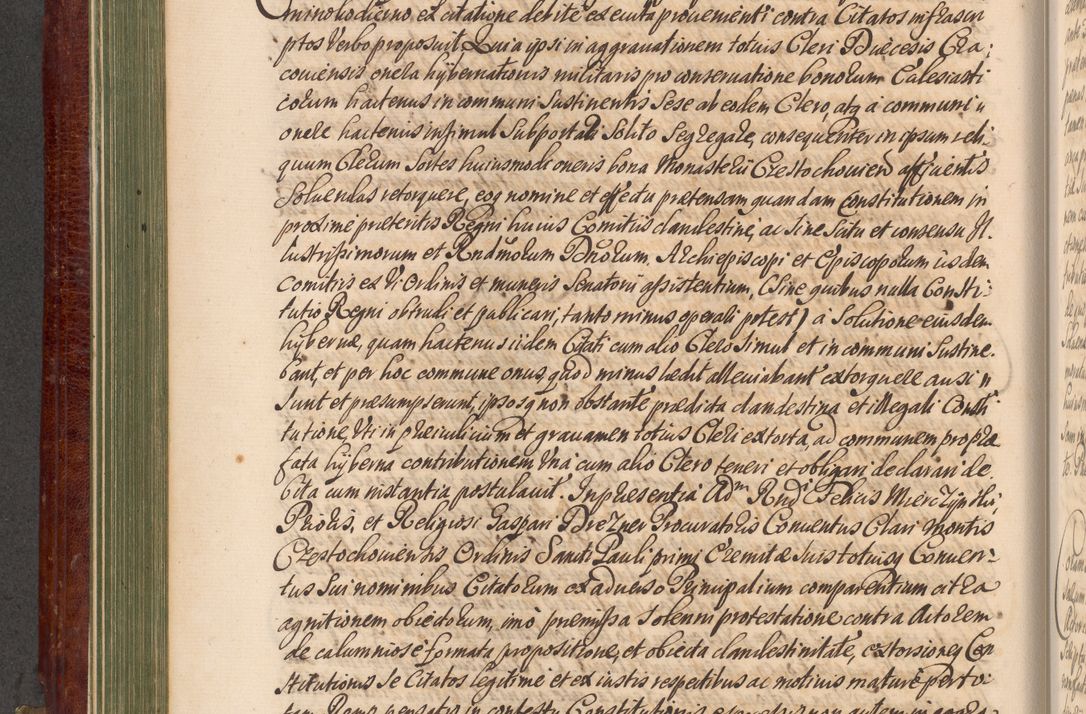 mino hodierno ex citatione debite executa provenienti contra Citatos infrascri
ptos Verbo proposuit. Quia ipsi in aggravationem totius Cleri Diæcesis Cra:
coviensis onera hybernationis militaris pro conservatione bonorum Eclesiasti
corum hactenus in communi Sustinentis Sese ab eodem Clero, atq a communi
onere hactenus insimul Subportari Solito Segregare, consequenter in ipsum reli:
quum Clerum Sortes huiusmodi oneris bona Monasterii Czestochovien afficientis
Solvendas retorquere, eoq nomine et effectu prætensam quandam Constitutionem in
proxime preteritis Regni huius Comitiis clandestine, ac sine Scitu et consensu Il.
lustrissimorum et Rndmorum Dnorum, Archiepiscopi et Episcoporum iisdem
comitiis ex Vi Ordinis et muneris Senatorii assistentium, (Sine quibus nulla Consti:
tutio Regni obtrudi et publicari, tanto minus operari potest) a Solutione eiusdem
hybernæ, quam hactenus iidem Citati cum alio Clero Simul et in communi Sustine.
bant, et per hoc commune onus, quod minus lædit alleviabant extorquere ausi
Sunt et præsumpserunt, ipsosq non obstante prædicta clandestina et illegali Consti
tutione, Uti in præiudicium et gravamen totius Cleri extorta, ad communem prope
fata hyberna contributionem Una cum alio Clero teneri et obligari declarari de
bita cum instantia postulavit. In præsentia Adm Rndi Felicis Mierczynski,
Prioris, et Religiosi Gaspari Drezner Procuratoris Conventus Clari Montis
Czestochoviensis Ordinis Sancti Pauli primi Eremitæ Suis totiusq Conven:
tus Sui nominibus Citatorum ex adverso Principalium comparentium citra
agnitionem obiectorum, imo præmissa Solenni protestatione contra Actorem
de calumniose formata propositione, et obiecta clandestinitate, extorsioneq Con
stitutionis Se Citatos legitime et ex iustis respectibus ac motivis mature per to: